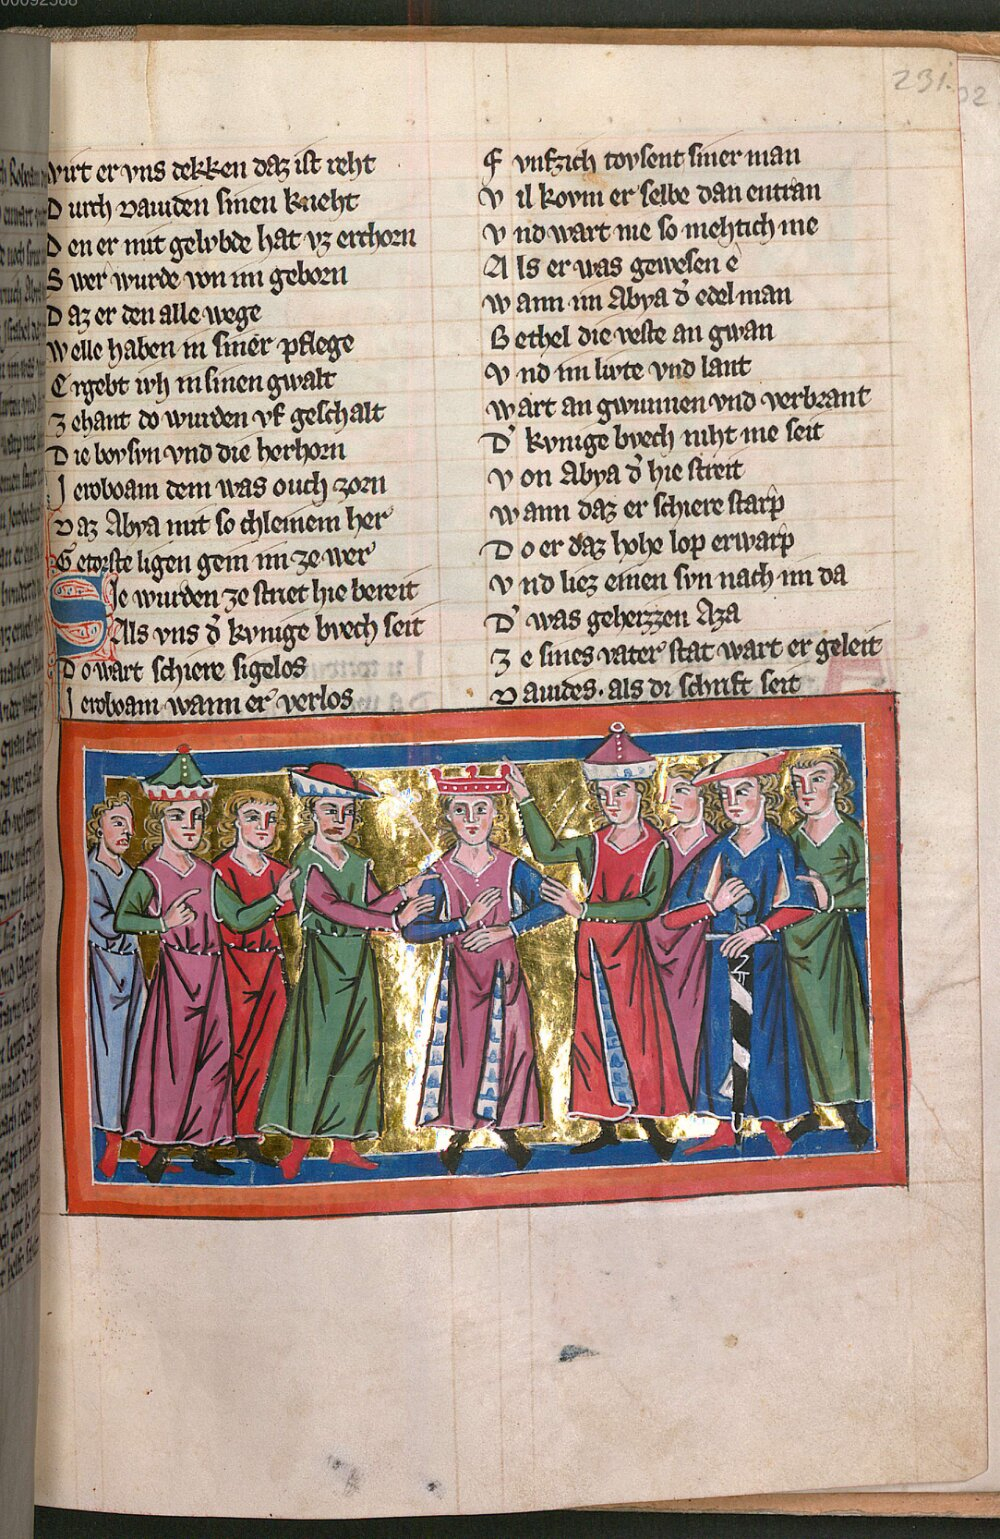 00092588
231.
wirt er vns dekken daz ist reht
Durch Dauiden sinen kneht
Den er mit gelvbde hat vz erchorn
Swer wurde von im geborn
Daz er den alle wege
Welle haben in siner pflege
Ergebt ivh in sinen gwalt
Zehant do wurden vf geschalt
Die bovsvn vnd die herhorn
Jeroboam dem was ouch zorn
Daz Abya mit so chleinem her
Getorste ligen gem im ze wer
Sie wurden ze striet hie bereit
Als vns d̾ kvnige bvech seit
Do wart schiere sigelos
Jeroboam wann er verlos
Fvnfzich tovsent siner man
Vil kovm er selbe dan entran
Vnd wart nie so mehtich me
Als er was gewesen e
Wann im Abya d̾ edel man
Bethel die veste an gwan
Vnd im livte vnd lant
Wart an gwunnen vnd verbrant
D̾ kvnige bvech niht me seit
Von Abya d̾ hie streit
Wann daz er schiere starp
Do er daz hohe lop erwarp
Vnd liez einen svn nach im da
D̾ was geheizzen Aza
Ze sines vater stat wart er geleit
Dauides. als di schrift seit